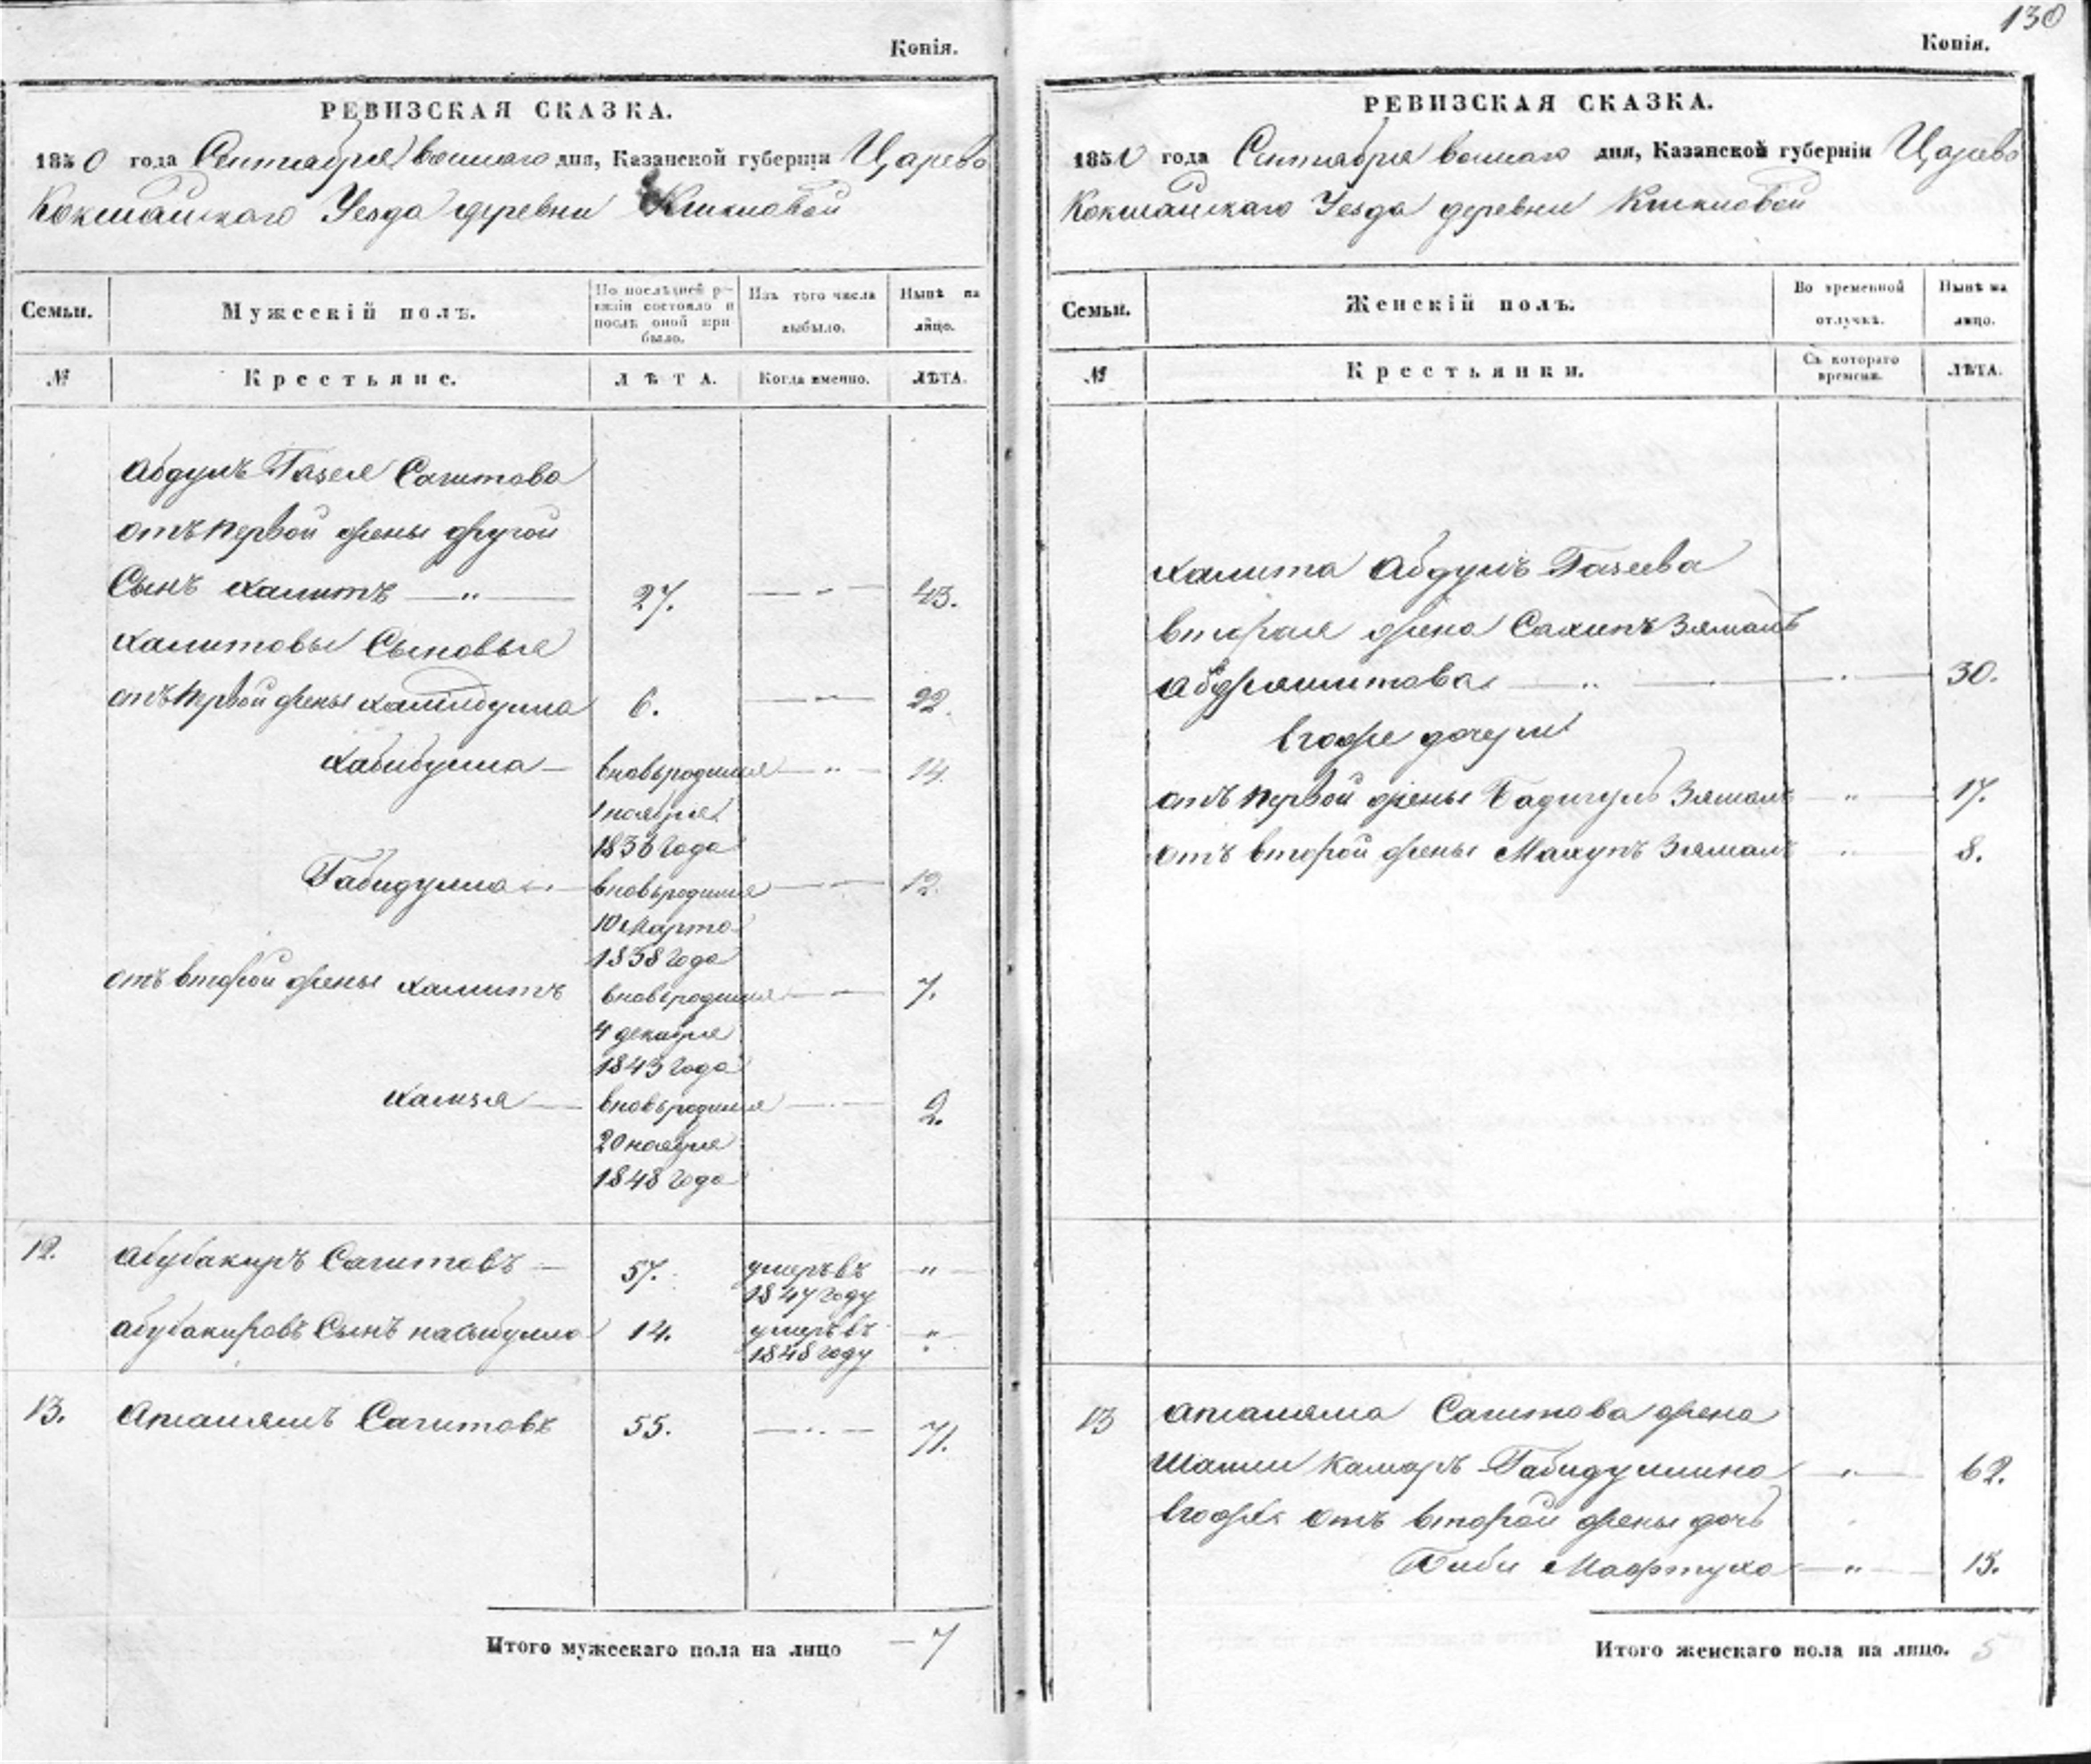 Копія.
РЕВИЗСКАЯ СКАЗКА.
1850 года Сентября восмаго дня, Казанской губерніи Царево
Кокшайскаго Уезда деревни Кшкловой
Семьи.
Мужескій полъ.
По послѣдней ре-
визіи состояло и
послѣ оной при
было.
Изъ того числа
выбыло.
Нынѣ на
лицо.
№
Крестьяне.
ЛѢТА.
Когда именно.
ЛѢТА.
Абдулъ Газея Сагитова
отъ первой жены другой
Сынъ Халитъ — „ — 27. — „ — 43.
Халитовы Сыновья
отъ первой жены Халидулла 6. — „ — 22.
Хабибулла — вновьродился — „ — 14.
1 ноября
1836 года
Габидулла — вновьродился — „ — 12.
10 Марта
1838 года
отъ второй жены Халитъ вновьродился — 7.
4 декабря
1843 года
Хамзя — вновьродился — 2.
20 ноября
1848 года
12. Абубакиръ Сагитовъ — 57. умеръ въ — „ —
1847 году
Абубакировъ Сынъ Насыбулла 14. умеръ въ — „ —
1848 году
13. Сагитовъ 55. — „ — 71.
Итого мужескаго пола на лицо — 7
130
Копія.
РЕВИЗСКАЯ СКАЗКА.
1850 года Сентября восмаго дня, Казанской губерніи Царево
Кокшайскаго Уезда деревни
Семьи.
Женскій полъ.
Во временной
отлучкѣ.
Нынѣ на
лицо.
№
Крестьянки.
Съ котораго
времени.
ЛѢТА.
Халита Абдулъ Газеева
вторая жена Сахипъ Зямалъ
Абдряшитова — „ — 30.
Егоже дочери
отъ первой жены Бадигулъ Зямалъ — „ — 17.
отъ второй жены Махупъ Зямалъ — „ — 8.
13 Сагитова жена
Шамси Камаръ Габидуллина — „ — 62.
Егоже отъ второй жены дочь
Биби Мафтуха — „ — 15.
Итого женскаго пола на лицо. 5